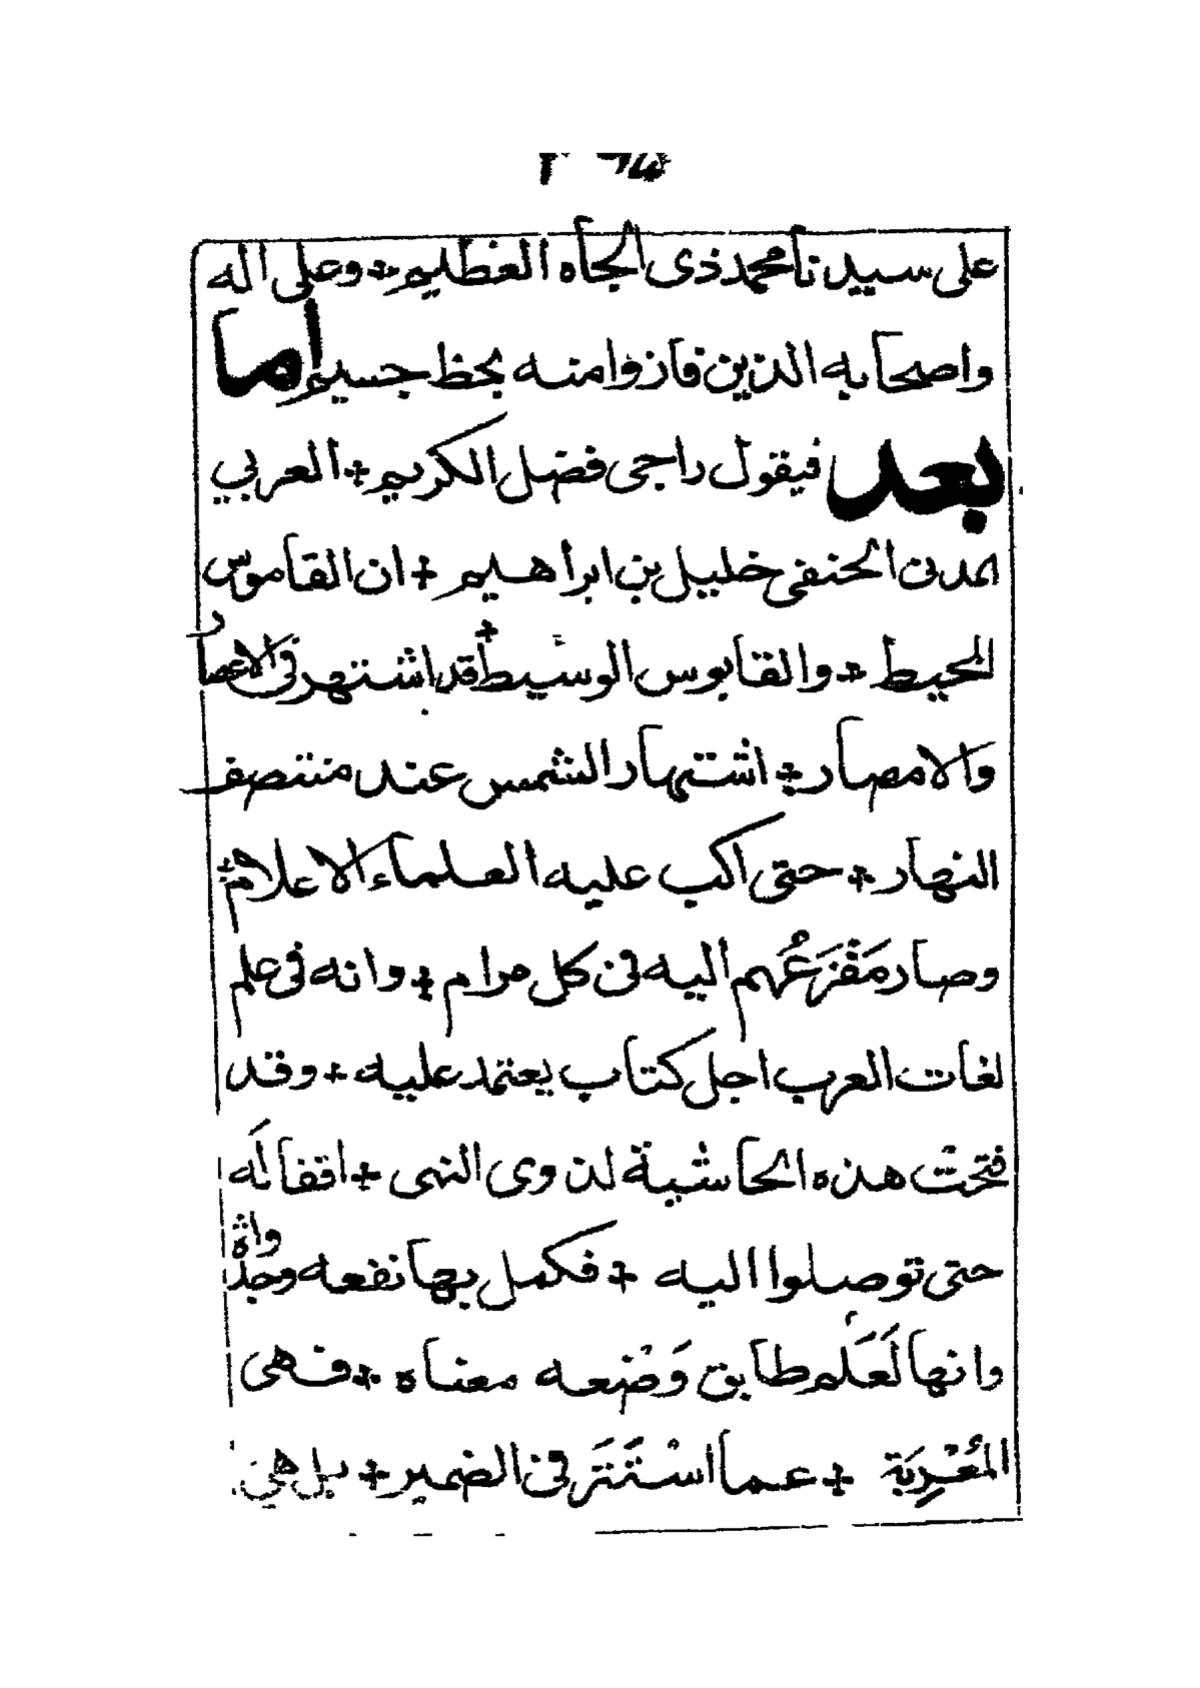 على سيدنا محمد ذى الجاه العظيم + وعلى اله
واصحابه الذين فازوا منه بحظ جسيم أما
بعد فيقول راجى فضل الكريم + العربي
المدنى الحنفى خليل بن ابراهيم + ان القاموس
المحيط + والقابوس الوسيط + قد اشتهر فى الاعصار
والامصار + اشتهار الشمس عند منتصف
النهار + حتى اكب عليه العلماء الاعلام +
وصار مَفْزَعُهم اليه فى كل مرام + وانه فى علم
لغات العرب اجل كتاب يعتمد عليه + وقد
فتحتْ هذه الحاشية لذوى النهى + اقفالَه
حتى توصلوا اليه + فكمل بها نفعه وجدواه
وانها لَعَلَم طابق وَضْعه معناه + فهى
المُعْرِبَة + عما اسْتَتَر فى الضمير + بل هي